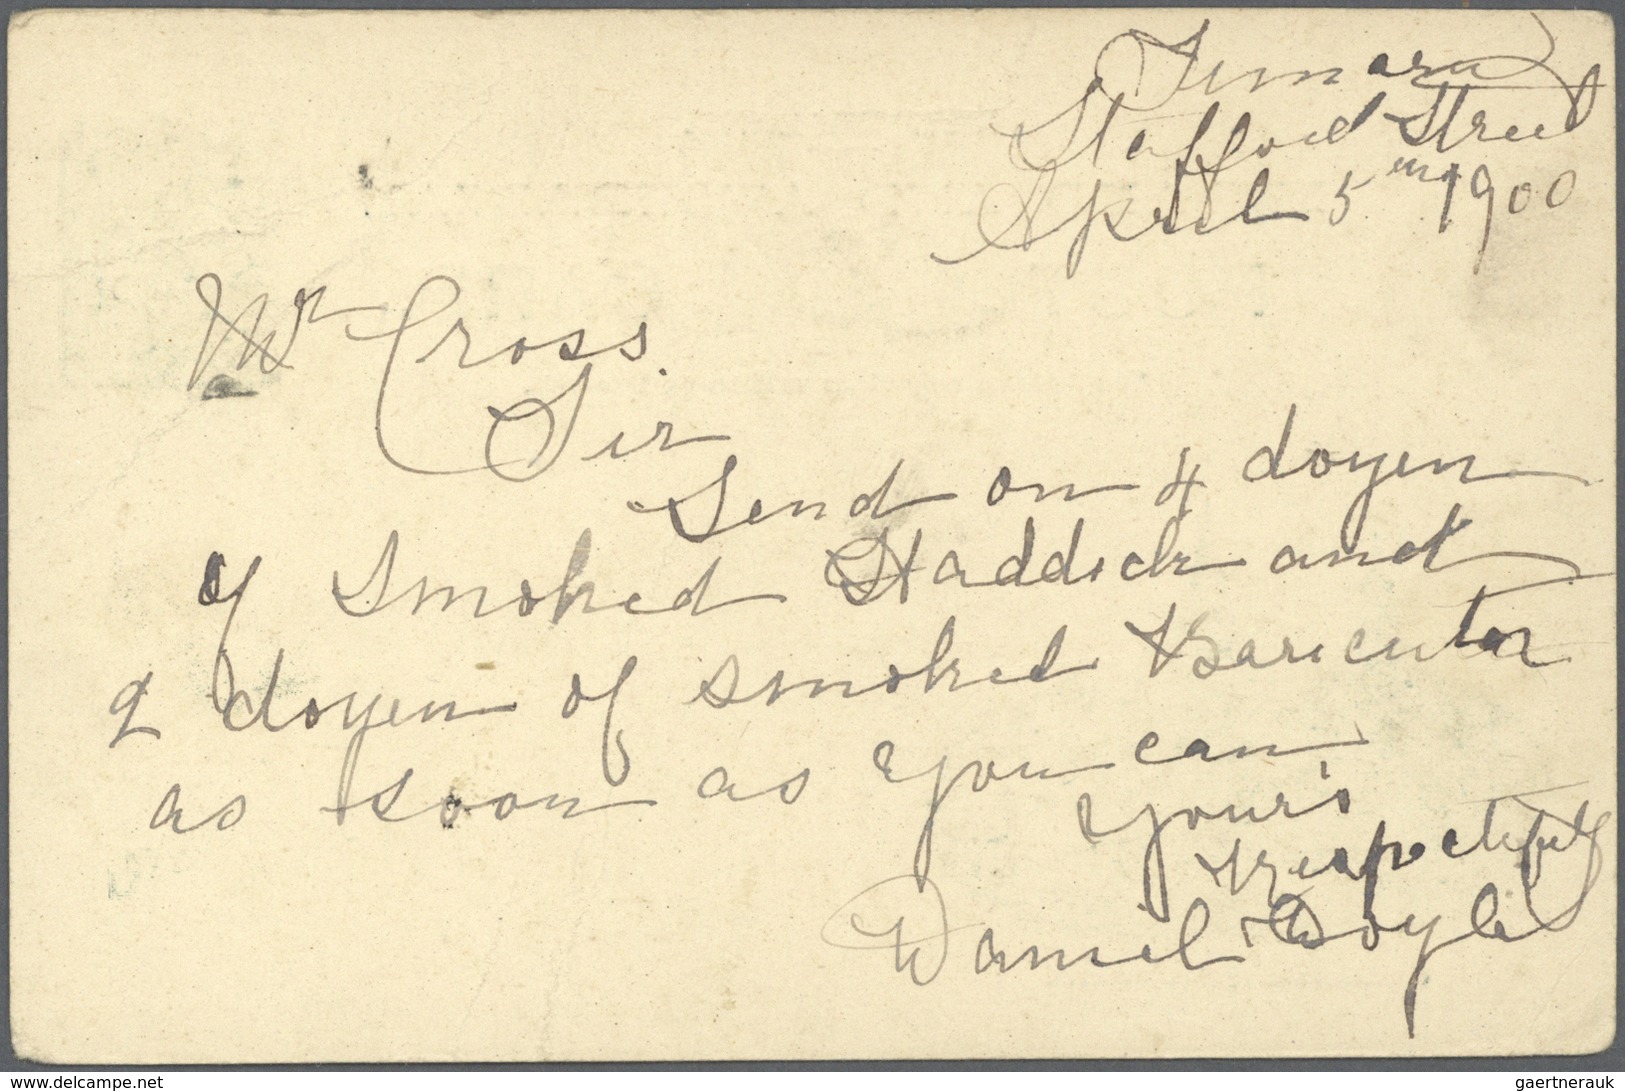 Timaru
Stafford Street
April 5th 1900
Mr Cross.
Sir
Send on 4 dozen
of Smoked Haddick and
2 dozen of smoked Baricutar
as soon as you can
Your's
respectfully
Daniel Doyle
www.delcampe.net
gaertnerauk